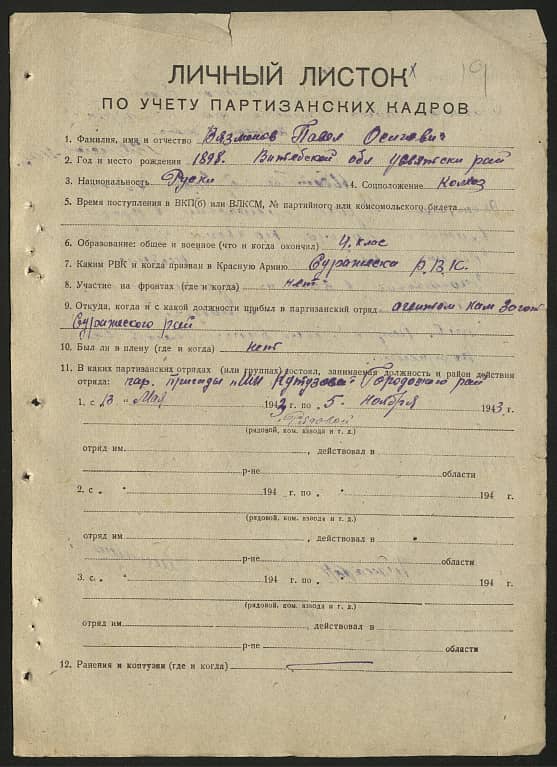 19
ЛИЧНЫЙ ЛИСТОК
ПО УЧЕТУ ПАРТИЗАНСКИХ КАДРОВ
1. Фамилия, имя и отчество Вязмонов Павел Осипович
2. Год и место рождения 1898. Витебской обл
3. Национальность Руски 4. Соцположение колхоз
5. Время поступления в ВКП(б) или ВЛКСМ, № партийного или комсомольского билета
6. Образование: общее и военное (что и когда окончил) 4 клас
7. Каким РВК и когда призван в Красную Армию Р.В.К.
8. Участие на фронтах (где и когда) нет
9. Откуда, когда и с какой должности прибыл в партизанский отряд агентом
рай
10. Был ли в плену (где и когда) нет
11. В каких партизанских отрядах (или группах) состоял, занимаемая должность и район действия
отряда: Кутузова рай
1. с 13 " Мая 1942 г. по " 5 " Ноября 1943 г.
Рядовой
(рядовой, ком. взвода и т. д.)
отряд им. , действовал в
р-не области
2. с " " 194 г. по " " 194 г.
(рядовой, ком. взвода и т. д.)
отряд им. , действовал в
р-не области
3. с " " 194 г. по " " 194 г.
(рядовой, ком. взвода и т. д.)
отряд им. , действовал в
р-не области
12. Ранения и контузии (где и когда)